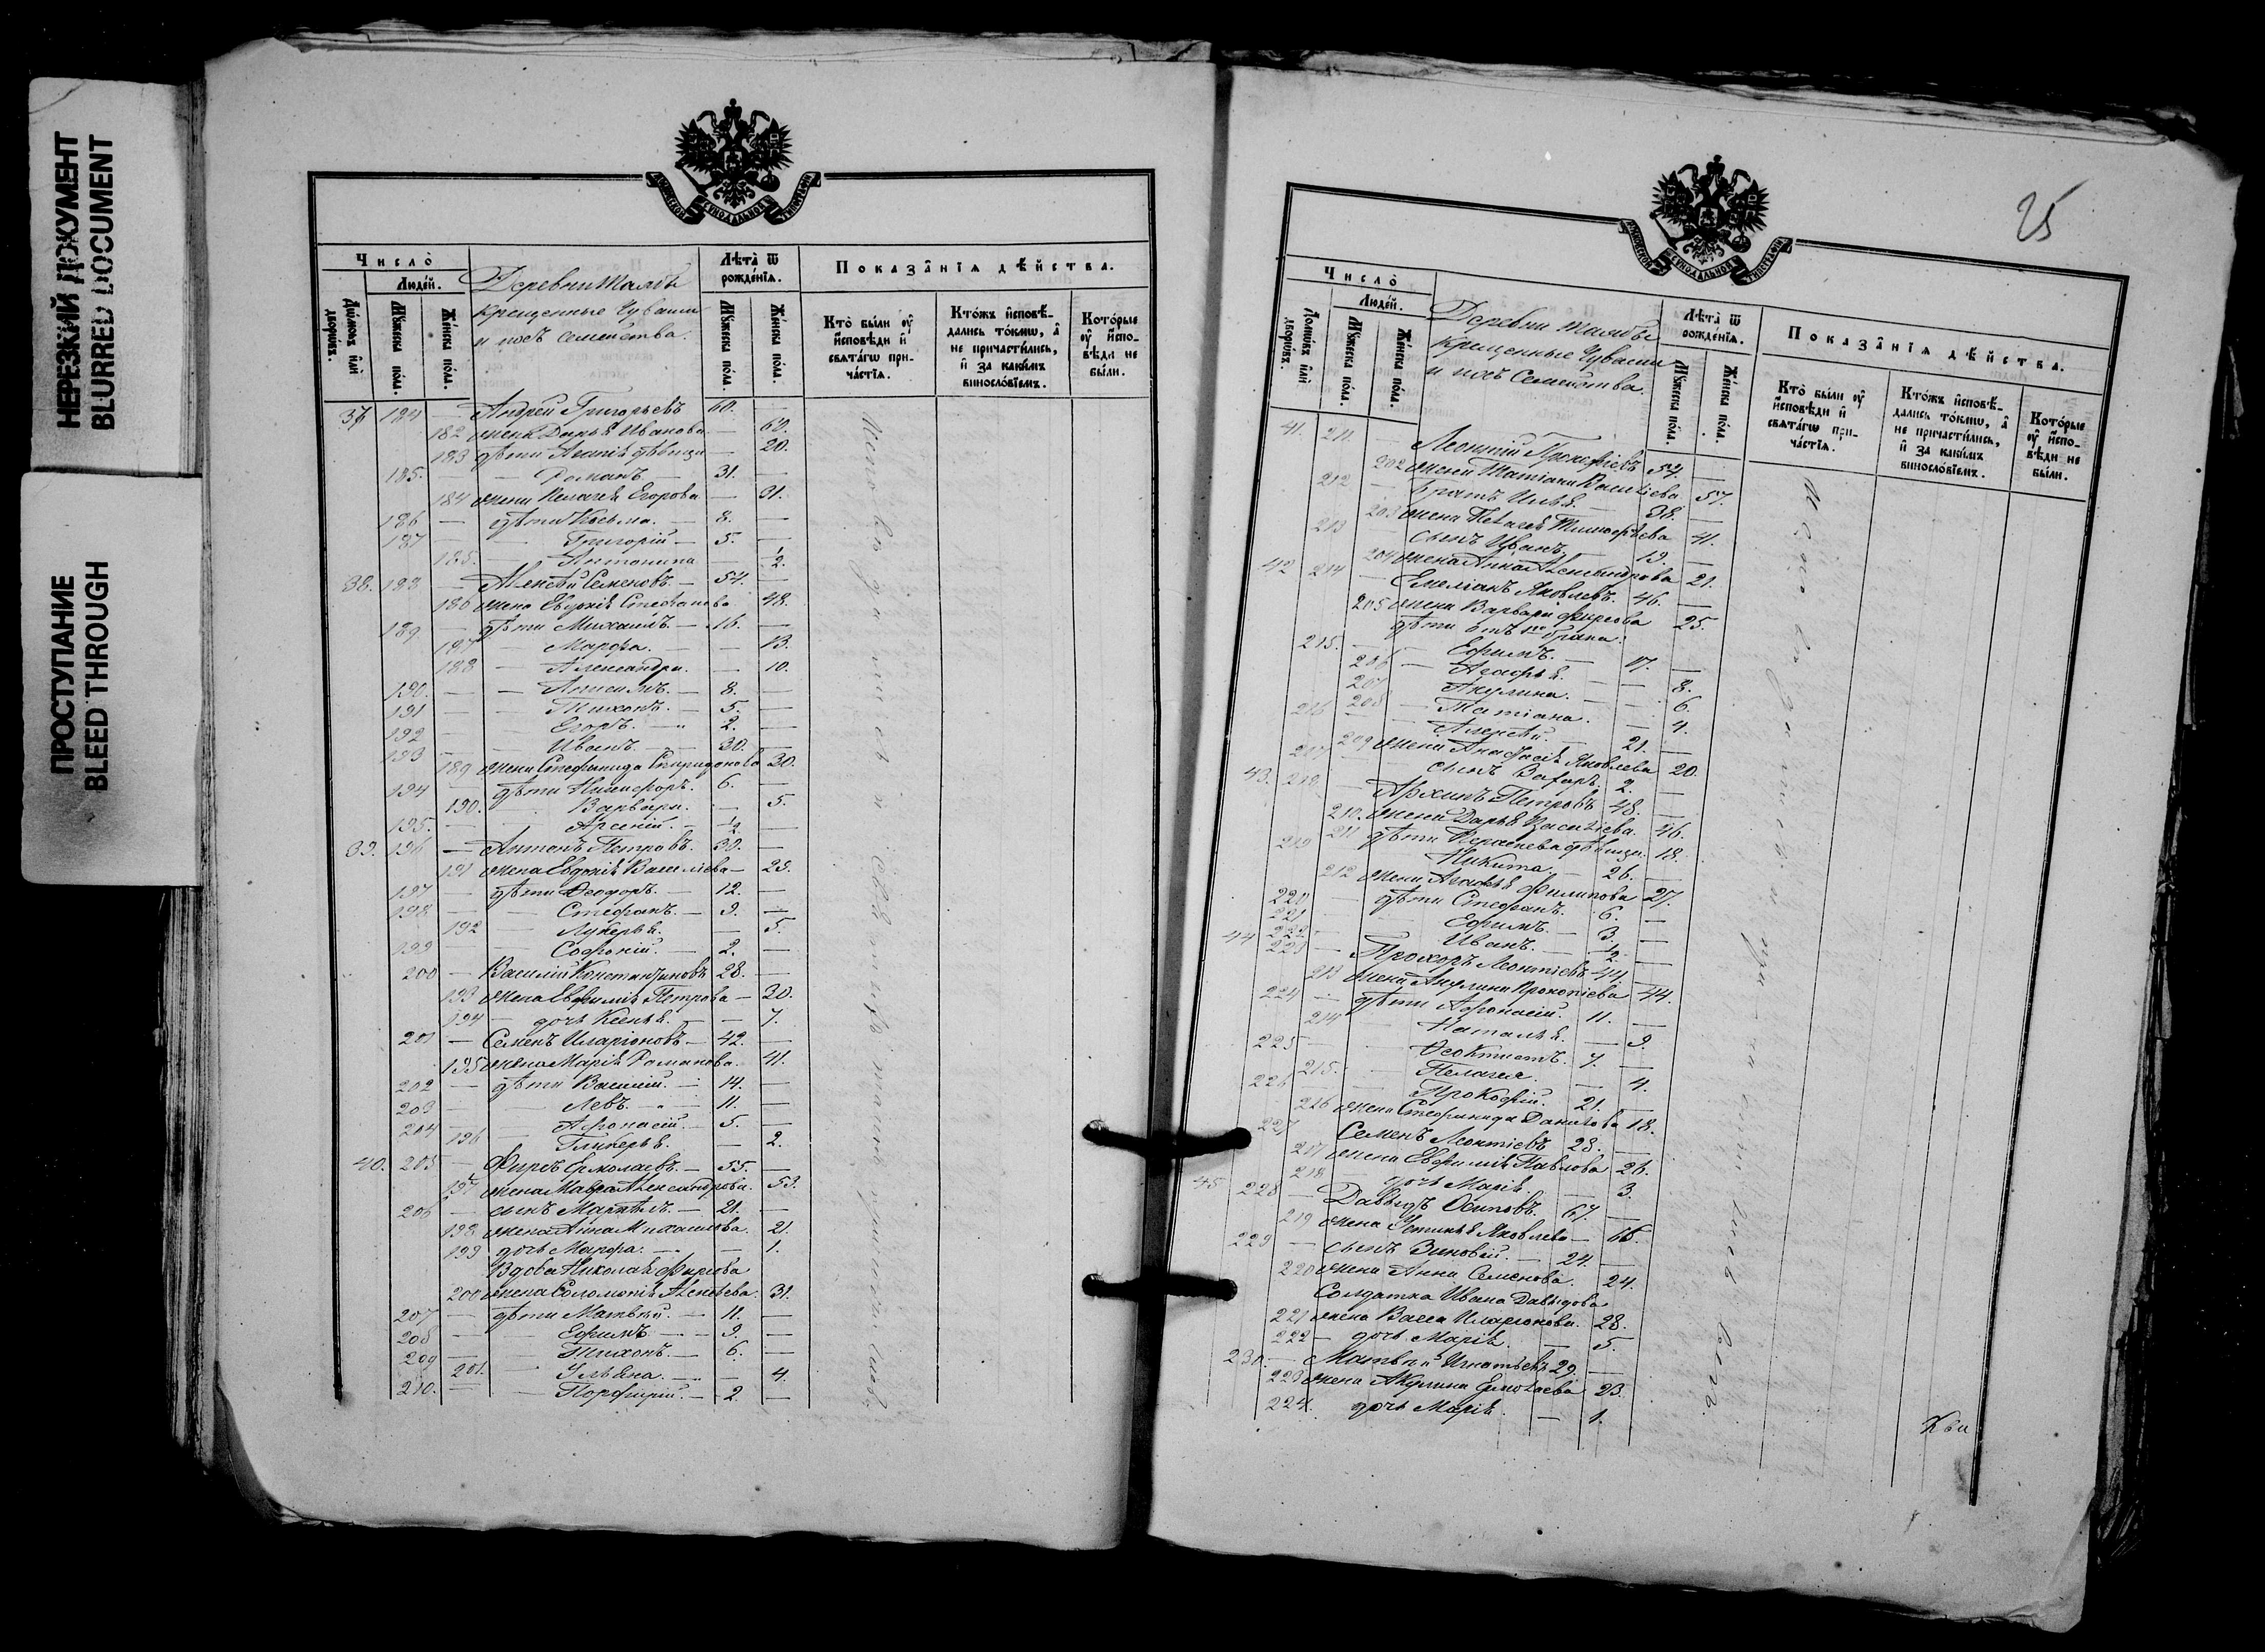 НЕРЕЗКИЙ ДОКУМЕНТ
BLURRED DOCUMENT
ПРОСТУПАНИЕ
BLEED THROUGH
СѴНОДАЛЬНОЙ ТИПОГРАФІИ
Число̀
Людей.
Деревни
крещенные Чуваши
и ихъ семейства.
Лѣта̀ ѿ рожде́нїѧ.
Показа̂нїѧ дѣ́йства.
Домѡ́въ и҆лѝ дворѡ́въ.
Мꙋ́жеска по́ла.
Же́нска по́ла.
Мꙋ́жеска по́ла.
Же́нска по́ла.
Кто̀ бы́ли ᲂу҆ и҆сповѣди и҆ свѧта́гѡ прича́стїѧ.
Кто́жъ и҆сповѣ́дались то́кмѡ, а҆ не причасти́лись, и҆ за каки́мъ винослόвїемъ.
Кото́рые ᲂу҆ и҆сповѣди не бы́ли.
37 184 — Андрей Григорьевъ 60. —
182 жена Дарья Иванова — 60.
183 дѣти девица — 20.
185. — Романъ 31. —
184 жена Пелагея Егорова — 31.
186 — дѣти Косьма. — 8. —
187 — Григорій — 5. —
185. Антонина — 1/2.
38. 188 — Алексѣй Семеновъ. — 54. —
186 жена Евдокія Степанова 48.
189 — дѣти Михаилъ. — 16. —
187 — Марфа. — 13.
188 — Александра. — 10.
190. — — 8. —
191 — Тихонъ. — 5. —
192 — Егоръ. — 2. —
193 — Иванъ. — 30. —
189 жена Стефанида Спиридонова 30.
194 — дѣти Никифоръ. 6. —
190. — Варвара. — 5.
195. — Арсеній. — 1/2 —
39. 196 — Антонъ Петровъ. 30. —
191 жена Евдокія Василіева —
197 — дѣти Феодоръ. — 12. —
198. — Стефанъ. — 9. —
192 — Лукерья. — 5.
199 — Софроній. — 2. —
200 — Василій Константиновъ 28. —
193 жена Евфимія Петрова — 30.
194 — дочь Ксенья. — 7.
201 — Семенъ Иларіоновъ — 42. —
195 жена Марія Романова. 41.
202 — дѣти Василій. — 14. —
203 — Левъ. — 11. —
204 — Афонасій. — 5. —
196 Гликерья. — 2.
40. 205 — Фирсъ Ермолаевъ. — 55. —
197 жена Мавра Александрова. 53.
206 — сынъ — 21. —
198 жена Анна Михаилова. 21.
199 дочь Марфа. — 1.
Вдова Николая Фирсова
200 жена Соломонія Алексѣева. 31.
207 — дѣти Матвѣй. — 11. —
208 — Ефимъ — 9. —
209 — Тихонъ. — 6. —
201. — Ульяна. — 4.
210. — Порфирій. — 2. —
25
СѴНОДАЛЬНОЙ ТИПОГРАФІИ
Число̀
Людей.
Деревни
крещенные Чуваши
и ихъ Семейства.
Лѣта̀ ѿ рожде́нїѧ.
Показа̂нїѧ дѣ́йства.
Домѡ́въ и҆лѝ дворѡ́въ.
Мꙋ́жеска по́ла.
Же́нска по́ла.
Мꙋ́жеска по́ла.
Же́нска по́ла.
Кто̀ бы́ли ᲂу҆ и҆сповѣди и҆ свѧта́гѡ прича́стїѧ.
Кто́жъ и҆сповѣ́дались то́кмѡ, а҆ не причасти́лись, и҆ за каки́мъ винослόвїемъ.
Кото́рые ᲂу҆ и҆сповѣди не бы́ли.
41. 211. Леонтій Прокофіевъ 54. —
202 жена Татіана Василіева 57.
212 — братъ Илья. — 38. —
203 жена Пелагея Тимофѣева 41.
213 сынъ Иванъ. 19. —
204 жена Анна Александрова 21.
42 214 — Емеліанъ Яковлевъ. 46. —
205 жена Варвара Фирсова 25.
дѣти отъ 1го брака:
215. — Ефимъ. — 17. —
206 — Агафья. — 8.
207 Акулина. — 6.
208 — Татіана. — 4.
216 Алексѣй. — 21. —
209 жена Анастасія Яковлева 20.
217 сынъ Захаръ. 2. —
43. 218. — Архипъ Петровъ 48. —
210. жена Дарья Василіева. 46.
211 дѣти девица. 18.
219 Никита. — 26. —
212 жена Агафья Филипова 27.
220 — дѣти Стефанъ. 6. —
221 Ефимъ. — 3. —
222 Иванъ. — 1/2 —
44 223 — Прохоръ Леонтіевъ 44 —
213 жена Акулина Прокопіева 44.
224 — дѣти Афонасій. 11. —
214 Наталья. — 9.
225 — Феоктистъ. 7. —
215. Пелагея. — 4.
226 Прокофій. 21. —
216 жена Стефанида Данилова 18.
227 Семенъ Леонтіевъ 28. —
217 жена Евфимія Павлова 26.
218 дочь Марія. — 3.
45 228 — Давыдъ Осиповъ. 67. —
219 жена Устинья Яковлева —
229 — сынъ Зиновій. — 24. —
220 жена Анна Семенова. 24.
Солдатка Ивана Давыдова
221 жена Васса Иларіонова. 28.
222 — дочь Марія. — 5.
230. — Матвѣй Игнатьевъ 29. —
223 жена Акулина Ермолаева 23.
224. дочь Марія. — 1.